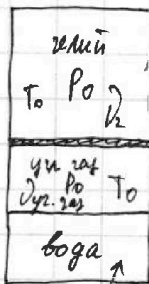 гелий
T₀ P₀ ν₂
угл газ
νуг. газ P₀ T₀
вода